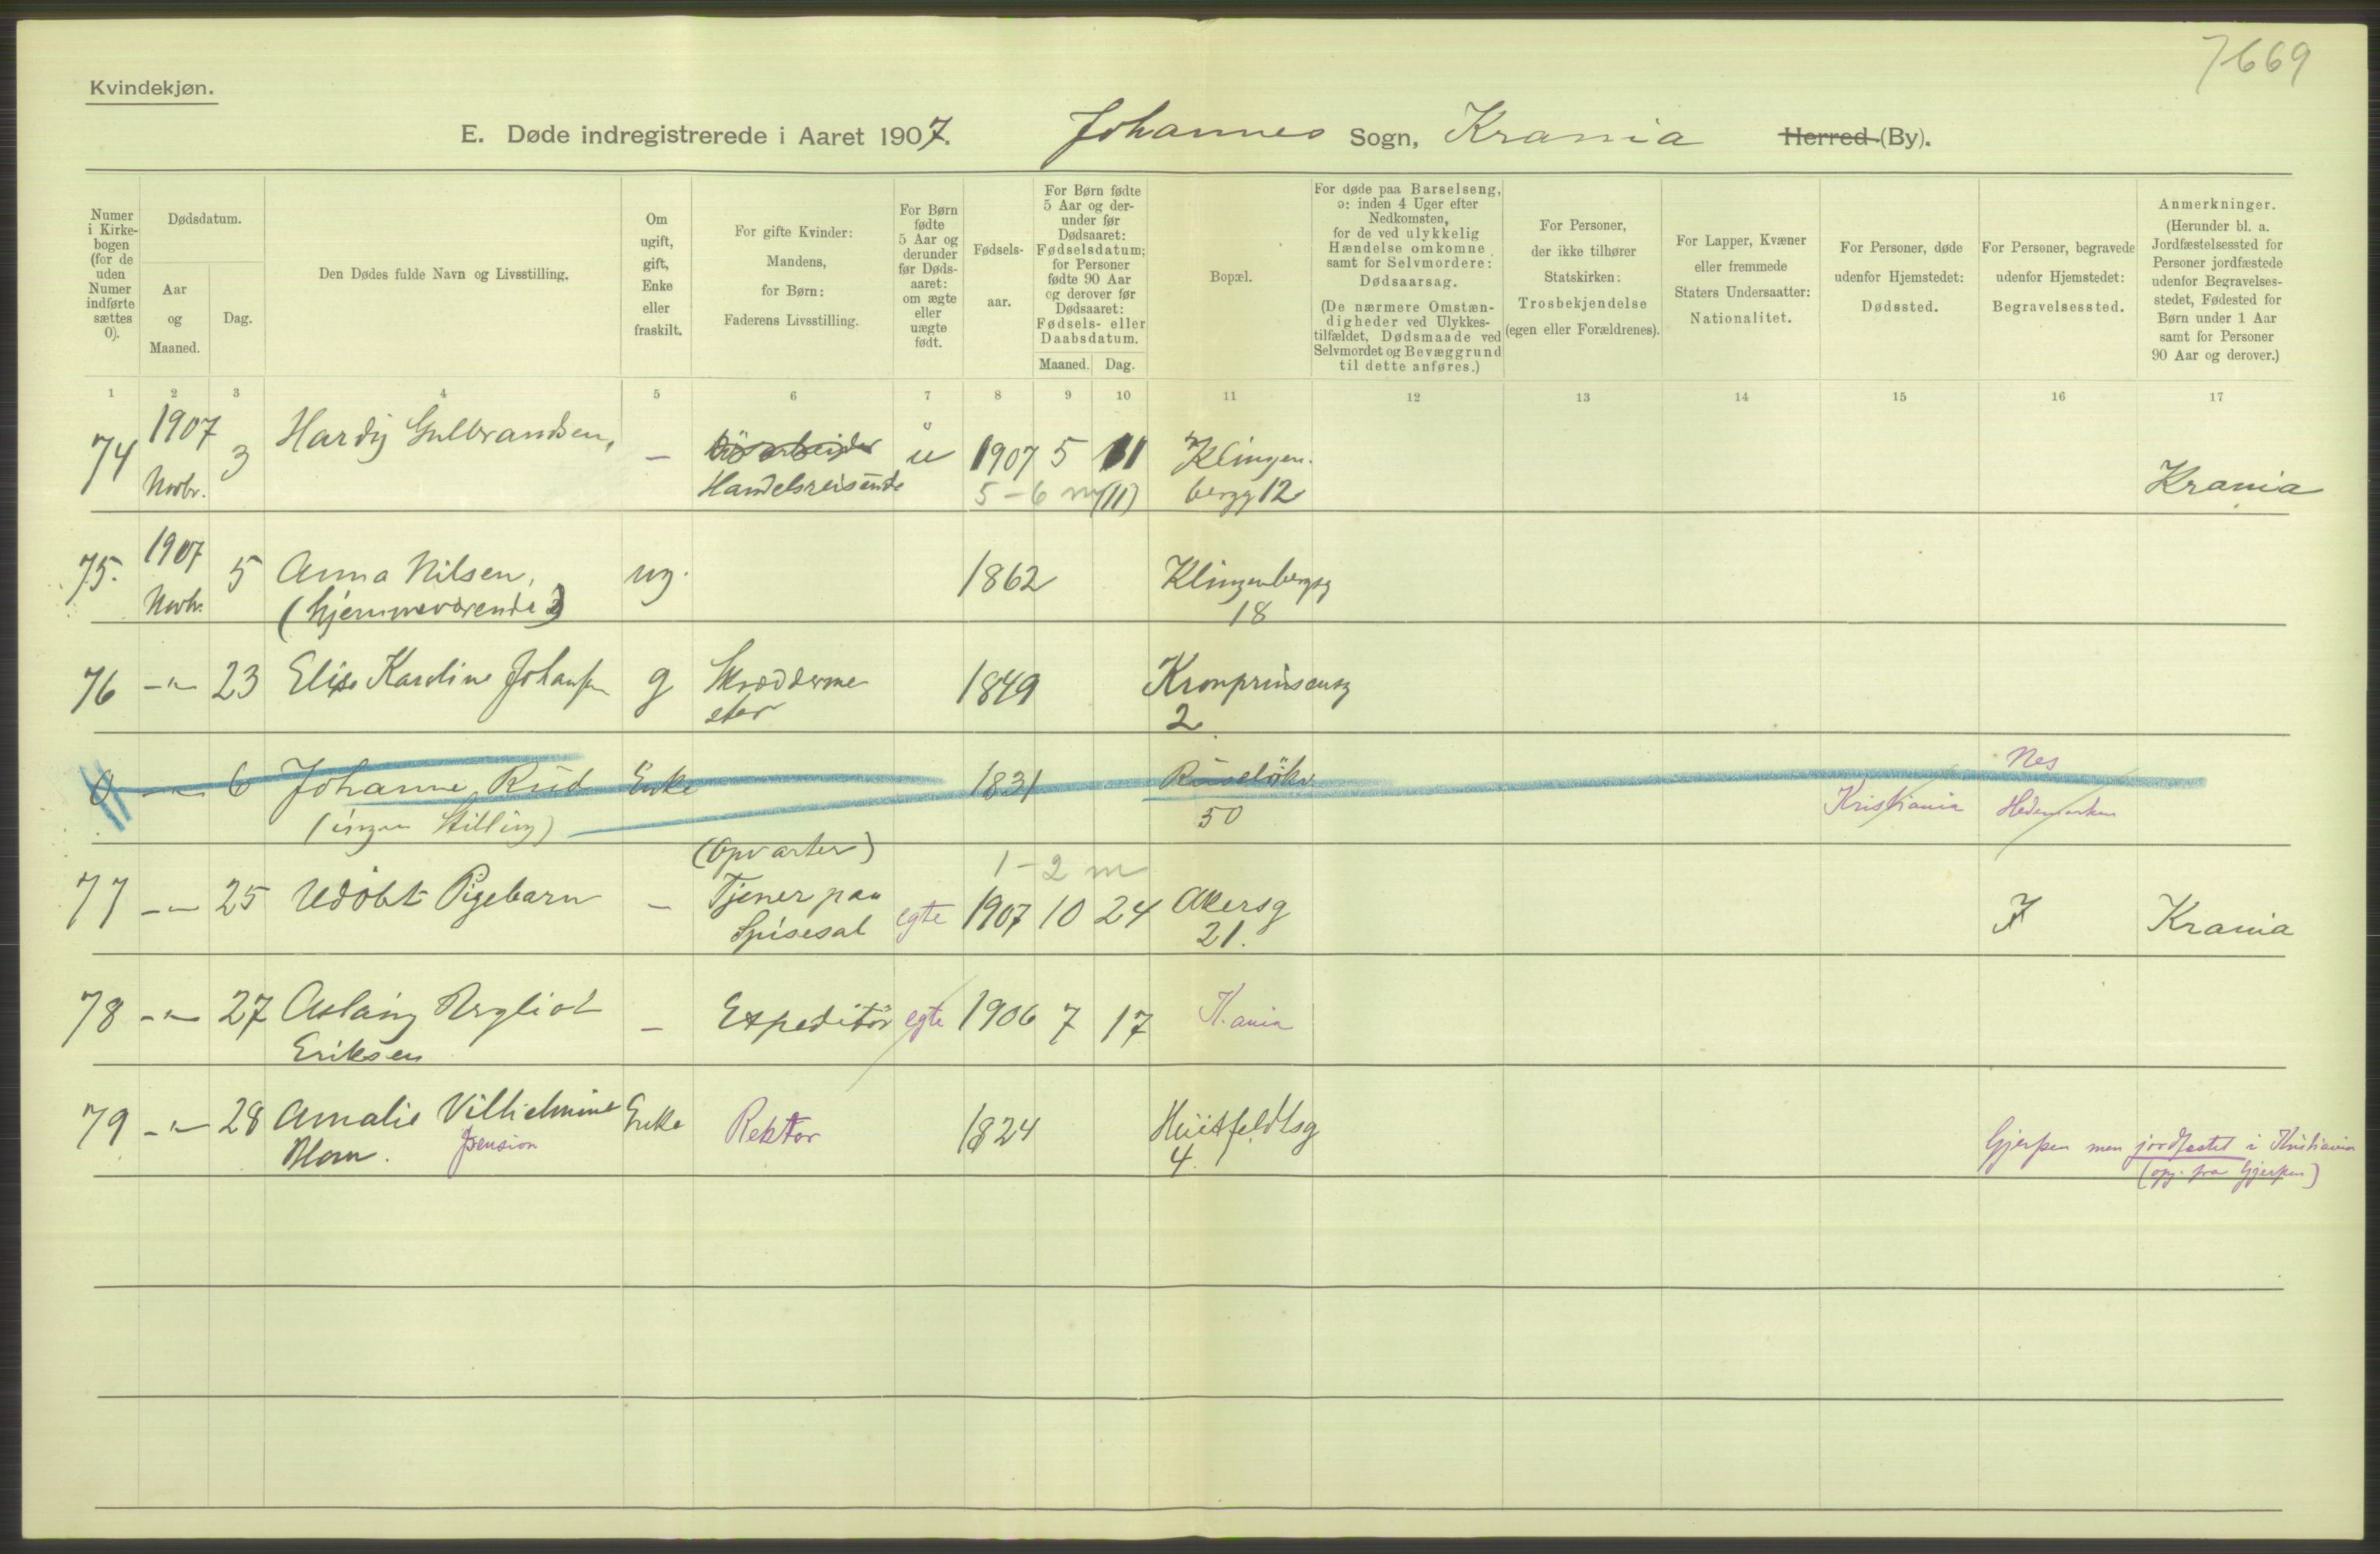 7669
Kvindekjøn.
E. Døde indregistrerede i Aaret 1907. Johannes Sogn, Krania Herred (By).
Numer i Kirkebogen (for de uden Numer indførte sættes 0).
Dødsdatum.
Aar og Maaned.
Dag.
Den Dødes fulde Navn og Livsstilling.
Om ugift, gift, Enke eller fraskilt.
For gifte Kvinder: Mandens, for Børn: Faderens Livsstilling.
For Børn fødte 5 Aar og derunder før Dødsaaret: om ægte eller uægte født.
Fødselsaar.
For Børn fødte 5 Aar og derunder før Dødsaaret: Fødselsdatum; for Personer fødte 90 Aar og derover før Dødsaaret: Fødsels- eller Daabsdatum.
Maaned. Dag.
Bopæl.
For døde paa Barselseng, ɔ: inden 4 Uger efter Nedkomsten, for de ved ulykkelig Hændelse omkomne samt for Selvmordere: Dødsaarsag.
(De nærmere Omstændigheder ved Ulykkestilfældet, Dødsmaade ved Selvmordet og Bevæggrund til dette anføres.)
For Personer, der ikke tilhører Statskirken: Trosbekjendelse (egen eller Forældrenes).
For Lapper, Kvæner eller fremmede Staters Undersaatter: Nationalitet.
For Personer, døde udenfor Hjemstedet: Dødssted.
For Personer, begravede udenfor Hjemstedet: Begravelsessted.
Anmerkninger.
(Herunder bl. a. Jordfæstelsessted for Personer jordfæstede udenfor Begravelsesstedet, Fødested for Børn under 1 Aar samt for Personer 90 Aar og derover.)
1 2 3 4 5 6 7 8 9 10 11 12 13 14 15 16 17
74 1907 Novbr. 3 Hardy Gulbrandsen, – Handelsreisende u 1907 5 11 Klingenbergg 12 Krania
5 – 6 m (11)
75. 1907 Novbr. 5 Anna Nilsen, ug. 1862 Klingenbergsg
(hjemmeværende) 18
76 –"– 23 Elise Karoline Johansen g Skræddermester 1849 Kronprinsensg
2
0 –"– 6 Johanne Rud Enke 1831 Ruseløkv. Kristiania Nes Hedemarken
(ingen Stilling) 50
(Opvarter) 1 – 2 m
77 –"– 25 Udøbt Pigebarn – Tjener paa Spisesal egte 1907 10 24 Akersg 21. Krania
78 –"– 27 Aslaug Bergliot – Expeditør egte 1906 7 17 K.ania
Eriksen
79 –"– 28 Amalie Vilhelmine Enke Rektor 1824 Huitfeldtsg Gjerpen men jordfæstet i Kristiania
Blom. pension 4. (opg. fra Gjerpen)